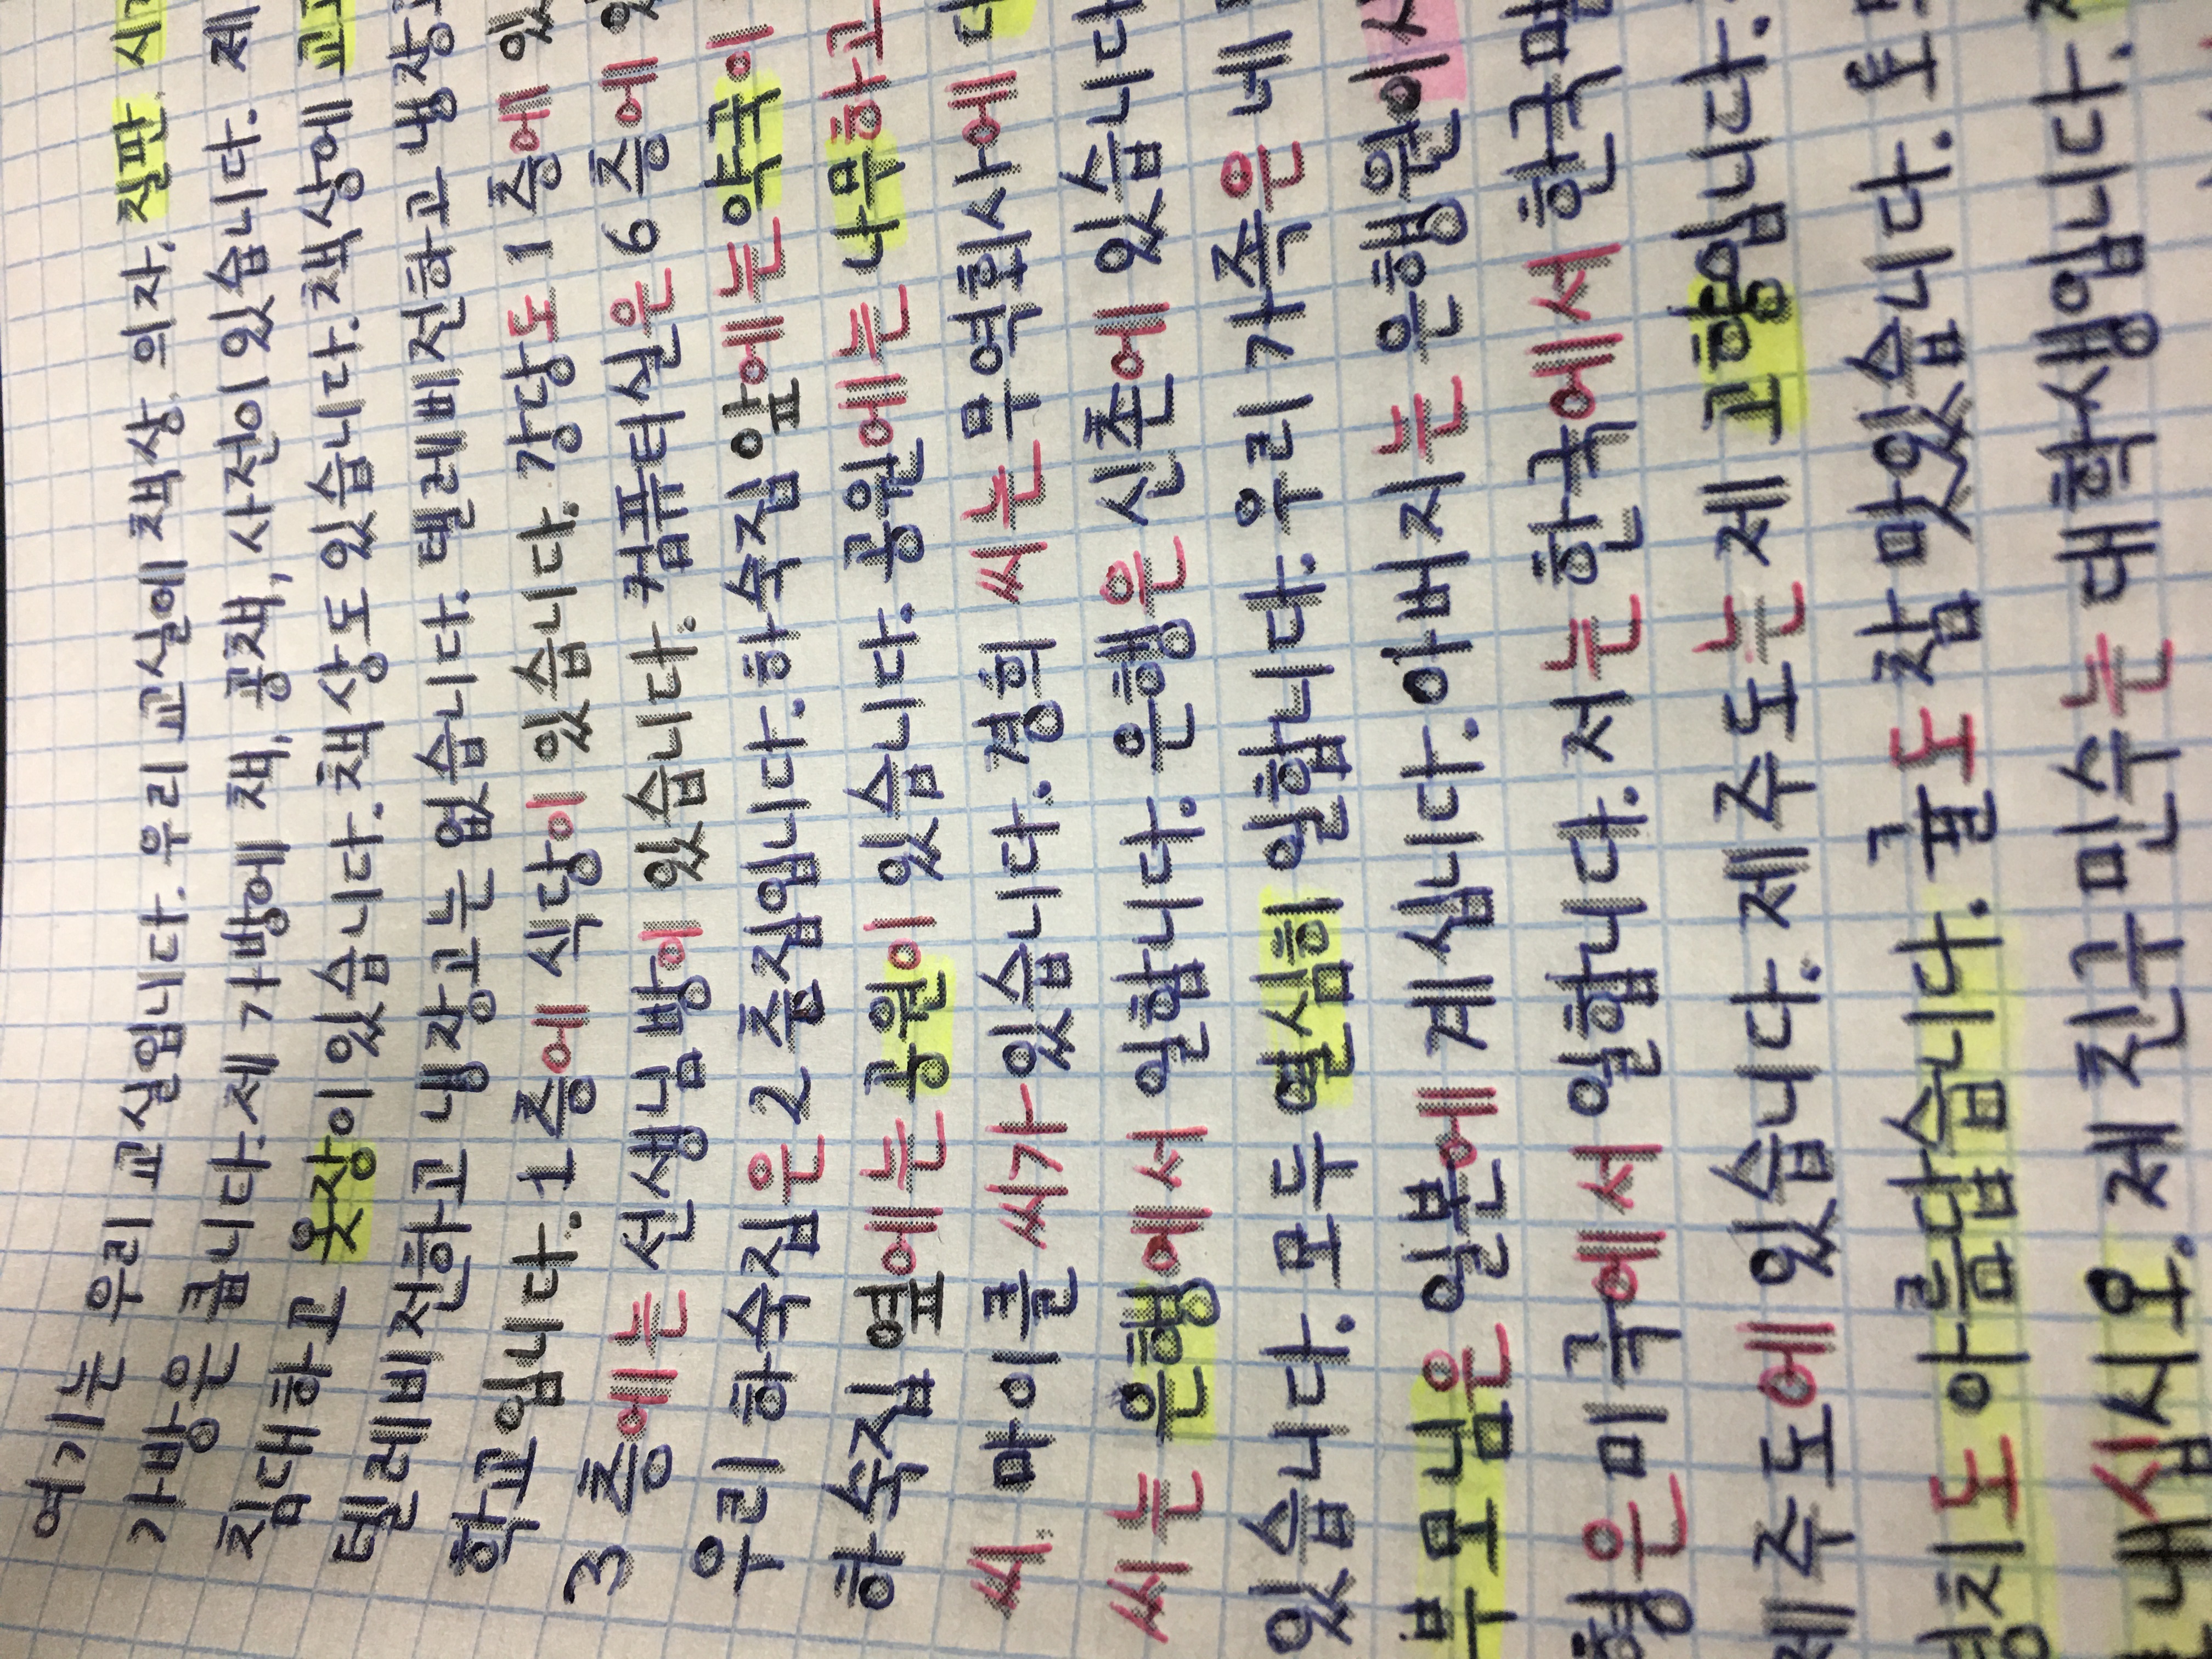 여기는 우리 교실입니다. 우리 교실에 책상, 의자, 칠판,
가방은 큽니다. 제 가방에 책, 공책, 사전이 있습니다. 제
침대하고 옷장이 있습니다. 책상도 있습니다. 책상에
텔레비전하고 냉장고는 없습니다. 텔레비전하고
학교입니다. 1층에 식당이 있습니다. 강당도 1층에
3층에는 선생님 빵이 있습니다. 컴퓨터실은 6층에
우리 하숙집은 2층집입니다. 하숙집 앞에는 약국이
하숙집 옆에는 공원이 있습니다. 공원에는 나무하고
씨, 마이클 씨가 있습니다. 경희 씨는 무역회사에
씨는 은행에서 일합니다. 은행은 신촌에 있습니다
있습니다. 모두 열심히 일합니다. 우리 가족은 네
부모님은 일본에 계십니다. 아버지는
형은 미국에서 일합니다. 저는 한국에서
제주도에 있습니다. 제주도는 제 고향입니다.
아름답습니다. 귤도 참 맛있습니다.
내십시오. 제 친구 민수는 대학생입니다.